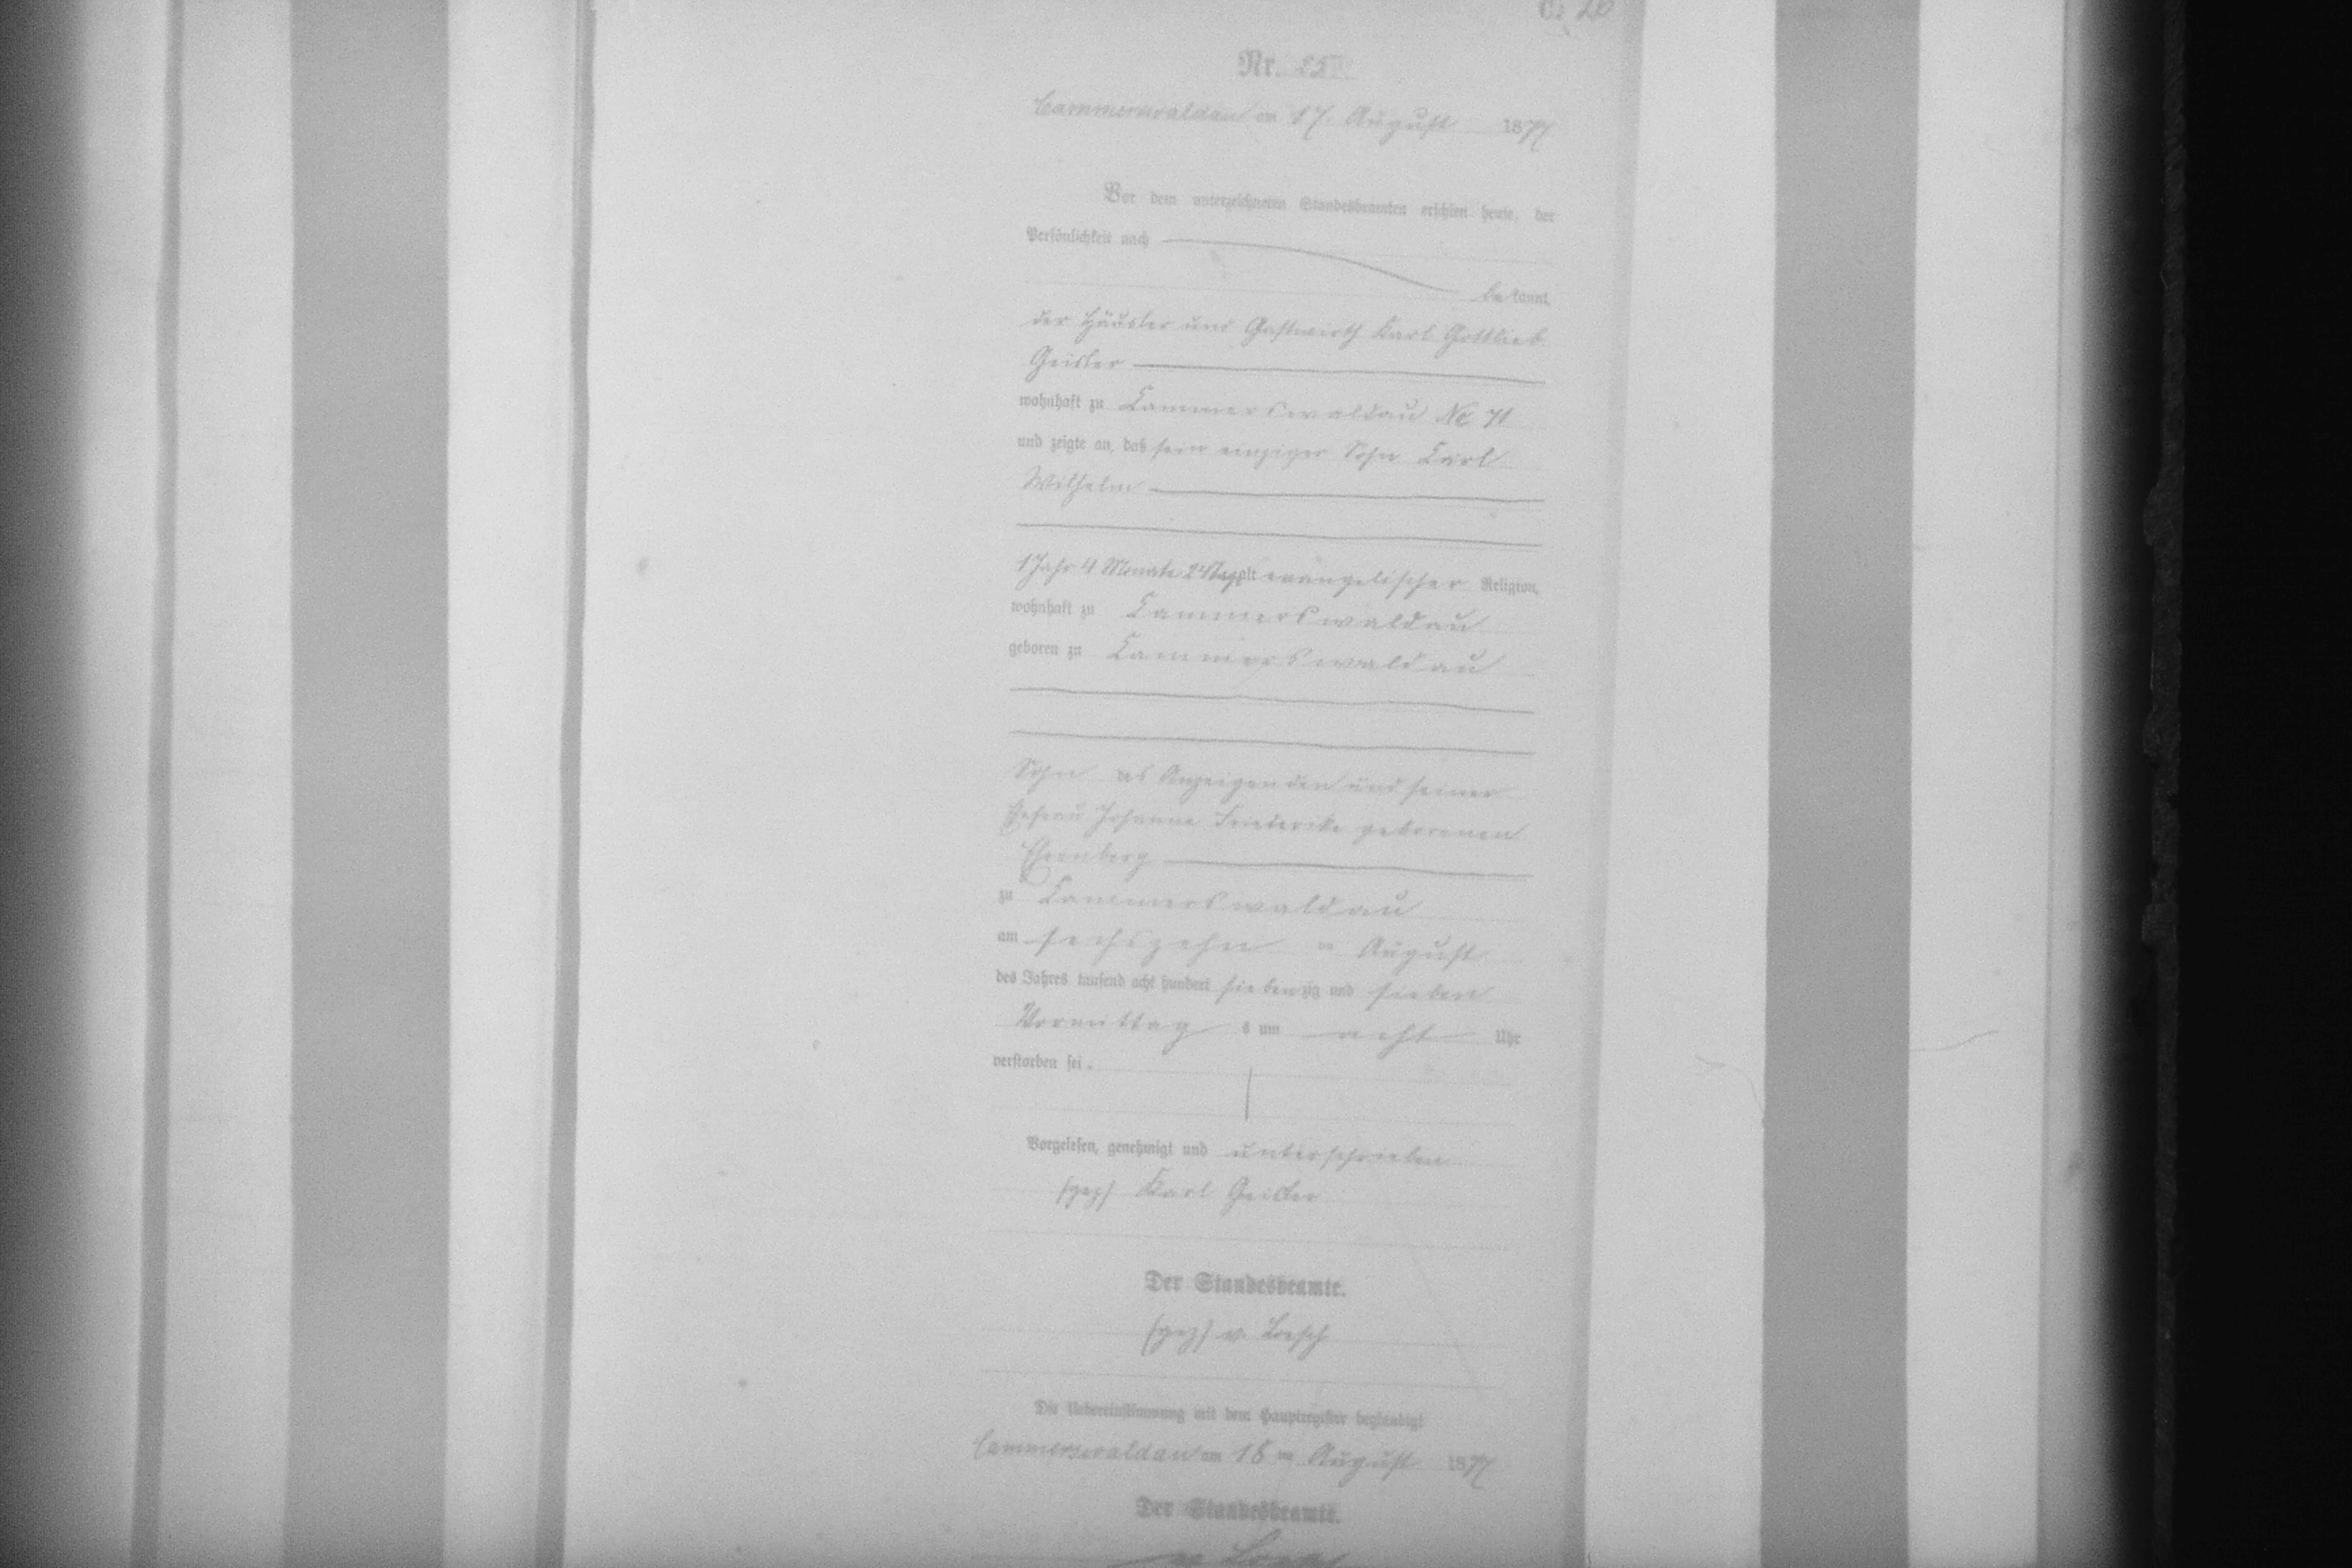 Nr. 25
Cammerswaldau am 17. August 1877
Vor dem unterzeichneten Standesbeamten erschien heute, der
Persönlichkeit nach
bekannt,
der Häusler und Gastwirth Karl Gottlieb
Geisler
wohnhaft zu Cammerswaldau No 71
und zeigte an, daß sein einziger Sohn Carl
Wilhelm
1 Jahr 4 Monate 24 Tage alt evangelischer Religion,
wohnhaft zu Cammerswaldau
geboren zu Cammerswaldau
Sohn des Anzeigenden und seiner
Ehefrau Johanne Friederike geborenen
Ehrenberg
zu Cammerswaldau
am sechszehn ten August
des Jahres tausend acht hundert siebenzig und sieben
Vormittag s um acht Uhr
verstorben sei.
Vorgelesen, genehmigt und unterschrieben
(gez) Karl Geisler
Der Standesbeamte.
(gez) v. Loesch
Die Uebereinstimmung mit dem Hauptregister beglaubigt
Cammerswaldau am 18 ten August 1877
Der Standesbeamte.
v. Loesch